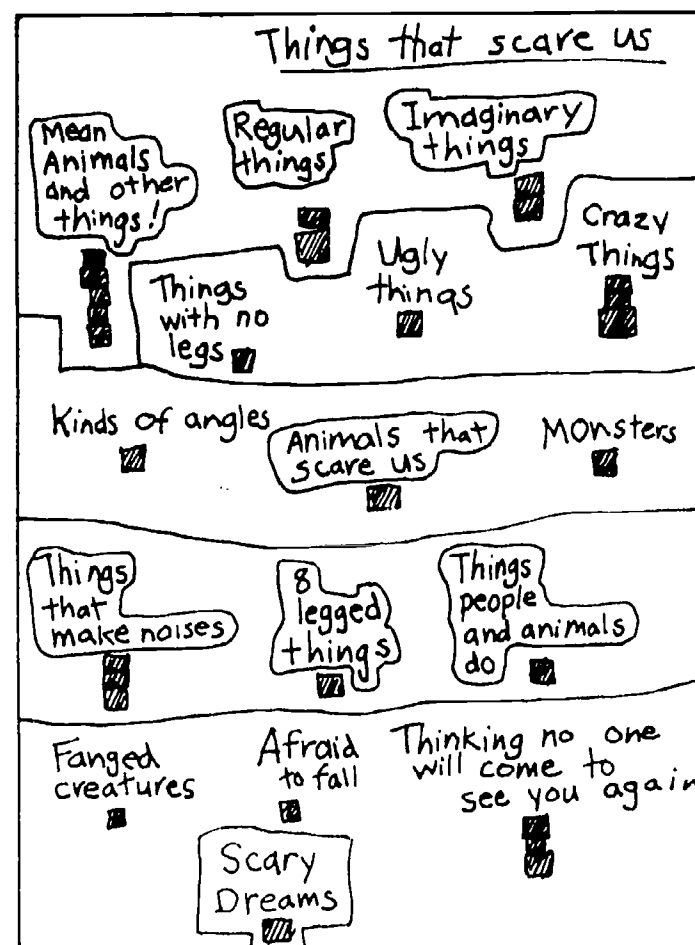 Things that scare us
Mean
Animals
and other
things!
Regular
things
Imaginary
things
Things
with no
legs
Ugly
things
Crazy
Things
Kinds of angles
Animals that
scare us
Monsters
Things
that
make noises
8
legged
things
Things
people
and animals
do
Fanged
creatures
Afraid
to fall
Thinking no one
will come to
see you again
Scary
Dreams